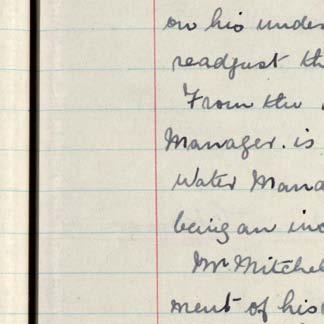 on his unders
readjust th
From the
Manager. is
Water Mana
being an inc
Mr Mitchel
ment of his